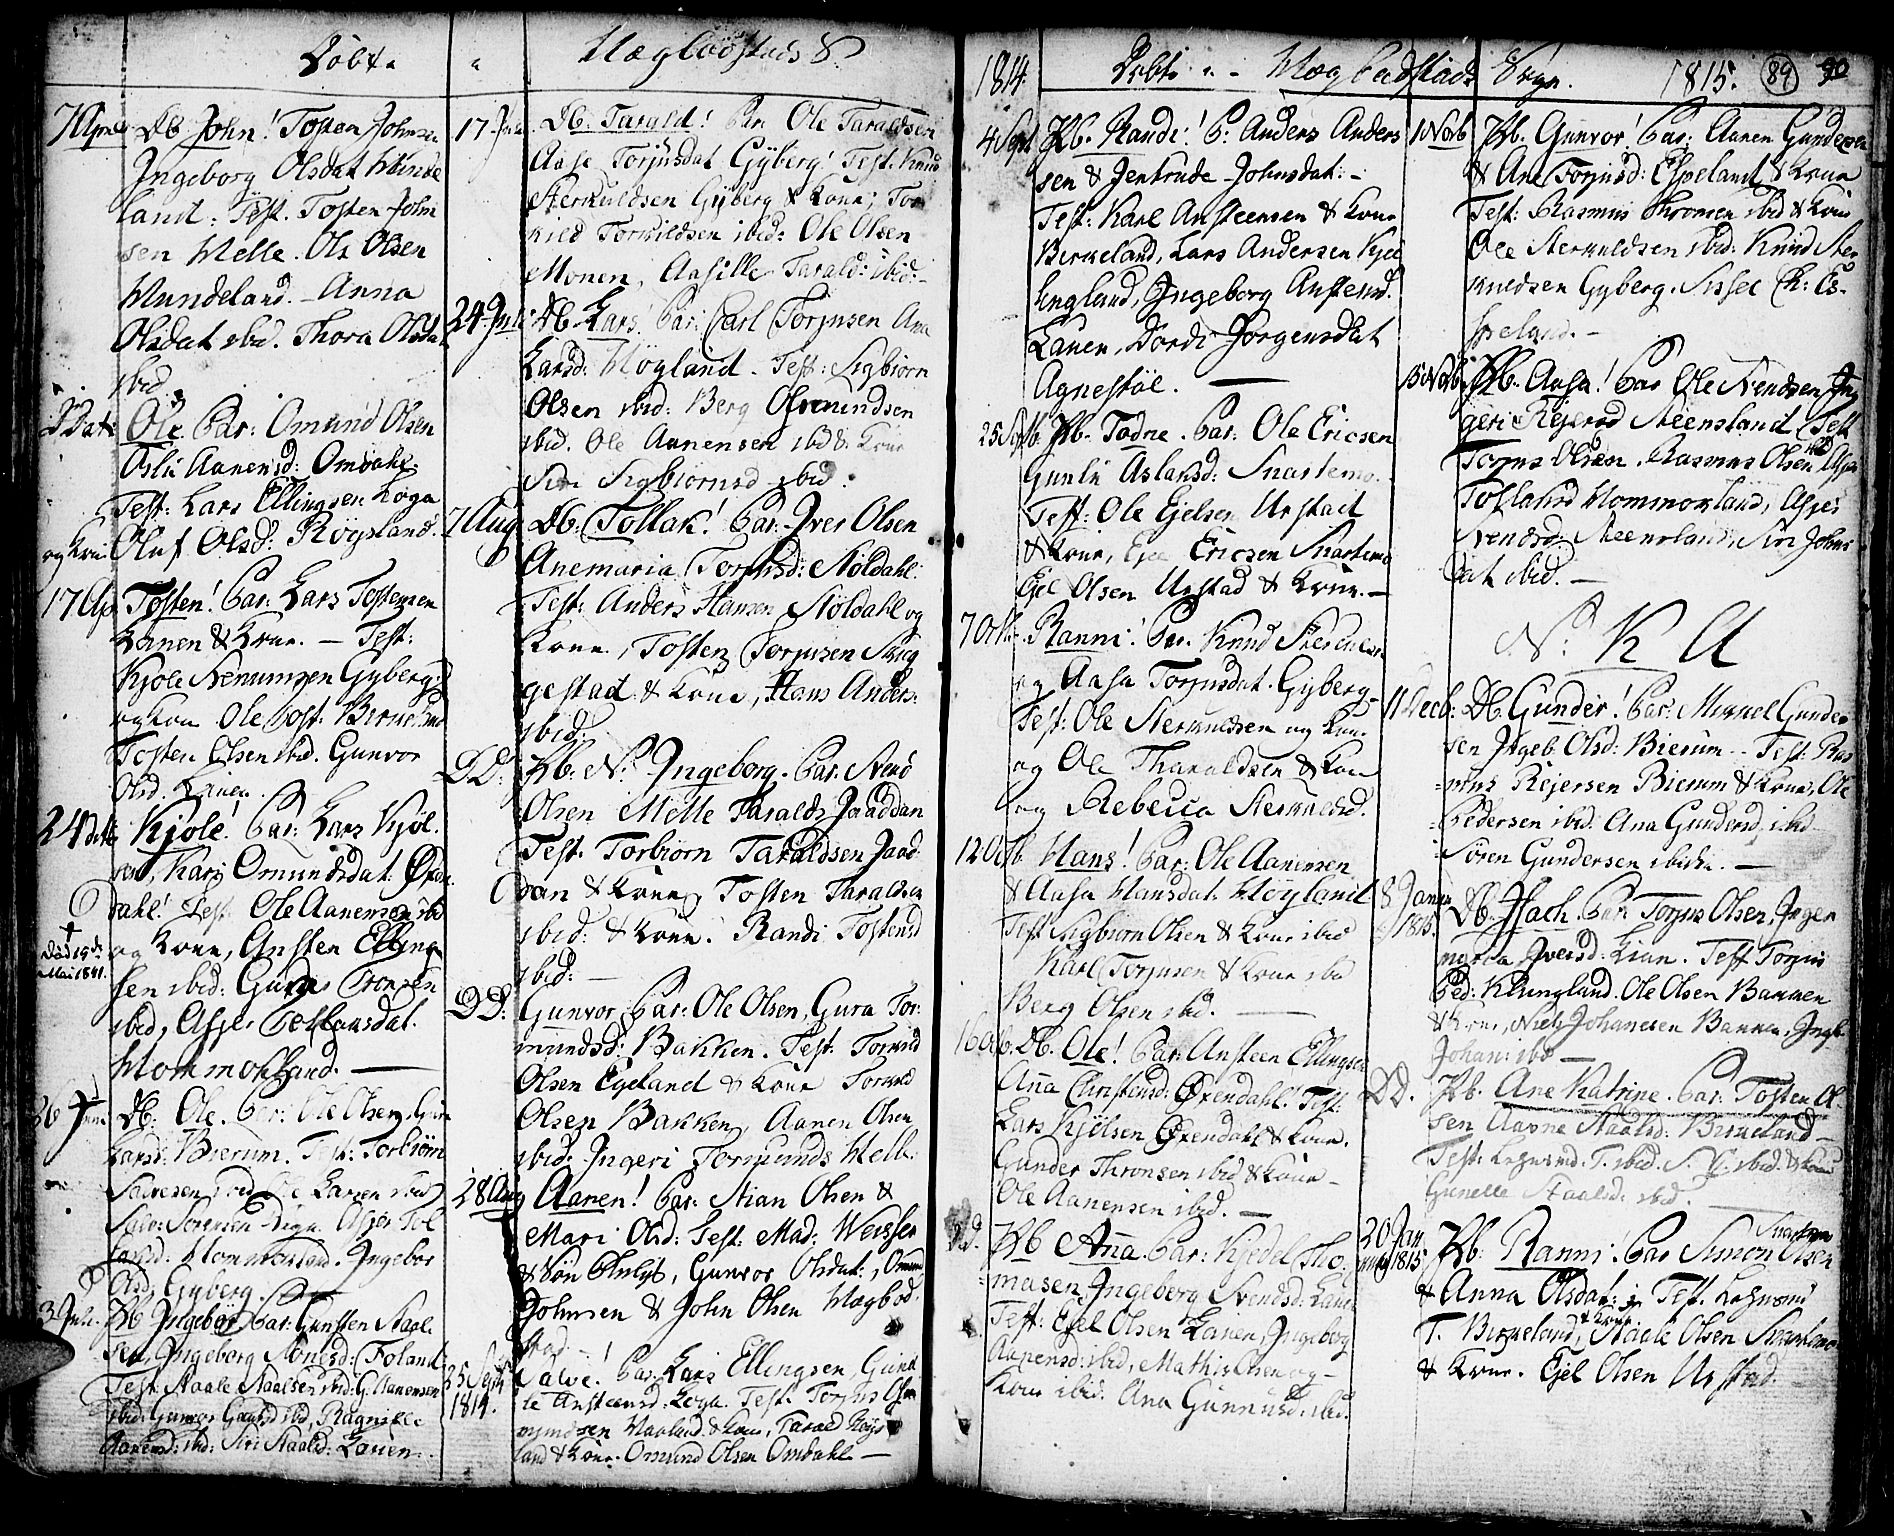 Döbte Hægböstads S.
7 April Db. John! Tosten Johnsen
Ingeborg Olsdat Munde
land: Test. Tosten John
sen Melle. Ole Olsen
Mundeland. - Anna
Olsdat ibid. Thora Olsdat
ibid.
D Dat: Ole Par: Omund Olsen
Aanensd: Omdahl
Test: Lars Ellingsen Loga
og Kone Oluf Olsd: Röysland.
17 Ap Tosten! Par: Lars Tostensen
Lanen & Kone. - Test:
Kjöle Nenumsen Gyberg
og Kone Ole Tost: Birkeland
Tosten Olsen ibid. Gunvor
Olsd. Lanen.
24 dito Kjöle! Par: Lars Kjöl
sen, Kari Omundsdat Öxen
dahl! Test Ole Aanensen ibid
† og Kone, Ansten Elling
Död 19de Mai 1841.
sen ibid: Gunder Tronsen
ibid, Asje Tollagsdat.
Hommorland. -
26 Juni Db. Ole. Par: Ole Olsen, Guri
Larsd: Bierum. Test: Torbiörn
Salvesen ibid Ole Larsen ibid
Salv: Sörensen Asje Tol
lansd: Hommorland. Ingebor
Olsd, Gyberg.
3 Juli Hb Ingebor Par: Gunsten Staal
sen, Ingeborg Tönnesd: Foland
Test: Staale Staalsen ibid. G. Aanensen
ibid: Gunvor ibid, Ragnille
Aanensd: ibid: Siri Staalsd: Lanen.
17 Juli Db. Tarald! Par Ole Taraldsen
Aase Torjusdat Gyberg! Test. Knud
Sterkuldsen Gyberg & Kone; Tor
kild Torkildsen ibid: Ole Olsen
Monen, Aasille Tarald: ibid:
24 Juli Db Lars! Par: Carl Torjusen Ana
Larsd: Höyland. Test: Sigbiörn
Olsen ibid: Berg Osmundsen
ibid. Ole Aanensen ibid & Kone
Siri Sigbiörnsd ibid:
7 Aug Db: Tollak! Par: Iver Olsen
Anemaria Torjusd: Stöldahl:
Test: Anders Hansen Stöldahl og
Kone, Tosten Torjusen Skeg
gestad & Kone, Hans Anders:
ibid:
DD: Hb: N: Ingeborg. Par: Svend
Olsen Melle Taralds Jaaddan
Test. Torbiörn Taraldsen Jaad
dan & Kone, Tosten Taraldsen
ibid: & Kone. Randi Tostensd
ibid: -
DD: Gunvor, Par: Ole Olsen, Gura Tor
mundsd: Bakken. Test. Torkild
Olsen Egeland & Kone Torkild
Olsen Bakken, Aanen Olsen
ibid: Ingeri Tormunds Melle.
28 Aug Aanen! Par: Stian Olsen &
Mari Olsd: Test: Mad: Weisser
Gunvor Olsdat:, Omund
Johnsen & John Olsen Hægböd
stad -
25 Sept 1814. Salve! Par: Lars Ellingsen, Gunil
le Ansteensd: Loga. Test. Torjus Os
mundsen Haaland & Kone, Tarald Röys
land & Kone. Omund Olsen Omdahl -
1814 Döbte - Hægbodstads Sogn. 1815. 89 90
4 Sept Hb. Randi! P: Anders Anders
sen & Jentrude Johnsdat: -
Test: Karl Ansteensen & Kone
Birkeland, Lars Andersen Kjel
lengland, Ingeborg Anstensd.
Lauen, Dordi Jörgensdat
Agnestöl. -
25 Septb. Hb. Todne. Par: Ole Ericsen
Gunlu Aslaksd: Snartemo.
Test: Ole Ejelsen Urstad
& Kone, Ejel Ericsen Snartemo
Ejel Olsen Urstad & Kone. -
7 Octb. Ranni! Par. Knud Sterkuldsen
og Aasa Torjusdat Gyberg
Test: Ole Sterkuldsen og Kone
og Ole Tharaldsen & Kone
og Rebecca Sterkuldsd.
12 Octb Hans! Par: Ole Aanensen
& Aasa Hansdat. Höyland
Test Sigbiörn Olsen & Kone ibid
Karl Torjusen & Kone ibid
Berg Olsen ibid. -
16 Ocb. Db. Ole! Par: Ansteen Ellingsen
Anna Christensd: Öxendahl! Test:
Lars Kjölsen Öxendahl & Kone.
Gunder Thronsen ibid & Kone -
Ole Aanensen ibid. -
Dd. Hb Anna. Par: Kjedel Tho
masen, Ingeborg Svendsd: Lauen
Test: Ejel Olsen Lanen, Ingeborg
Aanensd: ibid, Mathis Olsen og
Kone ibid. Ana Gunnusd: ibid.
1 Novb Hb. Gunvor! Par: Aanen Gundersen
& Ane Torjusd: Espeland! & Kone
Test: Rasmus Thronsen ibid & Kone
Ole Sterkuldsen ibid: Knud Ster
kuldsen Gyberg. Sissel Ch: Es-
peland. -
15 Novb. Hb. Aasa! Par Ole Svendsen, In
geri Rejersd Steensland Test
Torjus Olsen. Rasmus Olsen ibid Asje
Tollaksd Hommorland, Asje
Svendsd: Steensland, Siri Johns
dat ibid. -
N: K A
11 Decb: Db. Gunder! Par: Mikkel Gunder
sen Ingeb. Olsd: Bierum - Test: Ras
mus Rejersen Bierum & Kone, Ole
Pedersen ibid. Ana Gundersd, ibid
Sören Gundersen ibid. -
8 Januar 1815. Db. Isach. Par: Torjus Olsen, Inger
maria Iversd: Lian. Test Torjus
Ped: Klungland. Ole Olsen Bakken
& Kone, Niels Johanesen Bakken, Ingeb.
Johan: ibid -
DD. Hb. Ane Katrine. Par: Tosten Ol
sen Aasne Staalsd: Birkeland -
Test: Ragnvald T. ibid. ibid. & Kone
Gunelle Staalsd: ibid. -
20 Januari 1815 Hb: Ranni. Par Simon Olsen Snartemo
& Anna Olsdat: Test. Ragnvald
T. Birkeland & Kone, Staale Olsen Snartemo
& Kone. Ejel Olsen Urstad. -